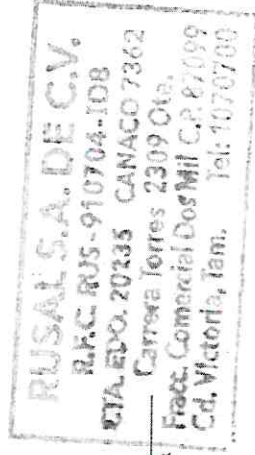 RUSAL S.A. DE C.V.
R.F.C. RUS-910704-IC8
CTA. EDO. 20235 CANACO 7362
Carrera Torres 2309 Ote.
Fracc. Comercial Dos Mil C.P. 87099
Cd. Victoria, Tam. Tel: 1070700